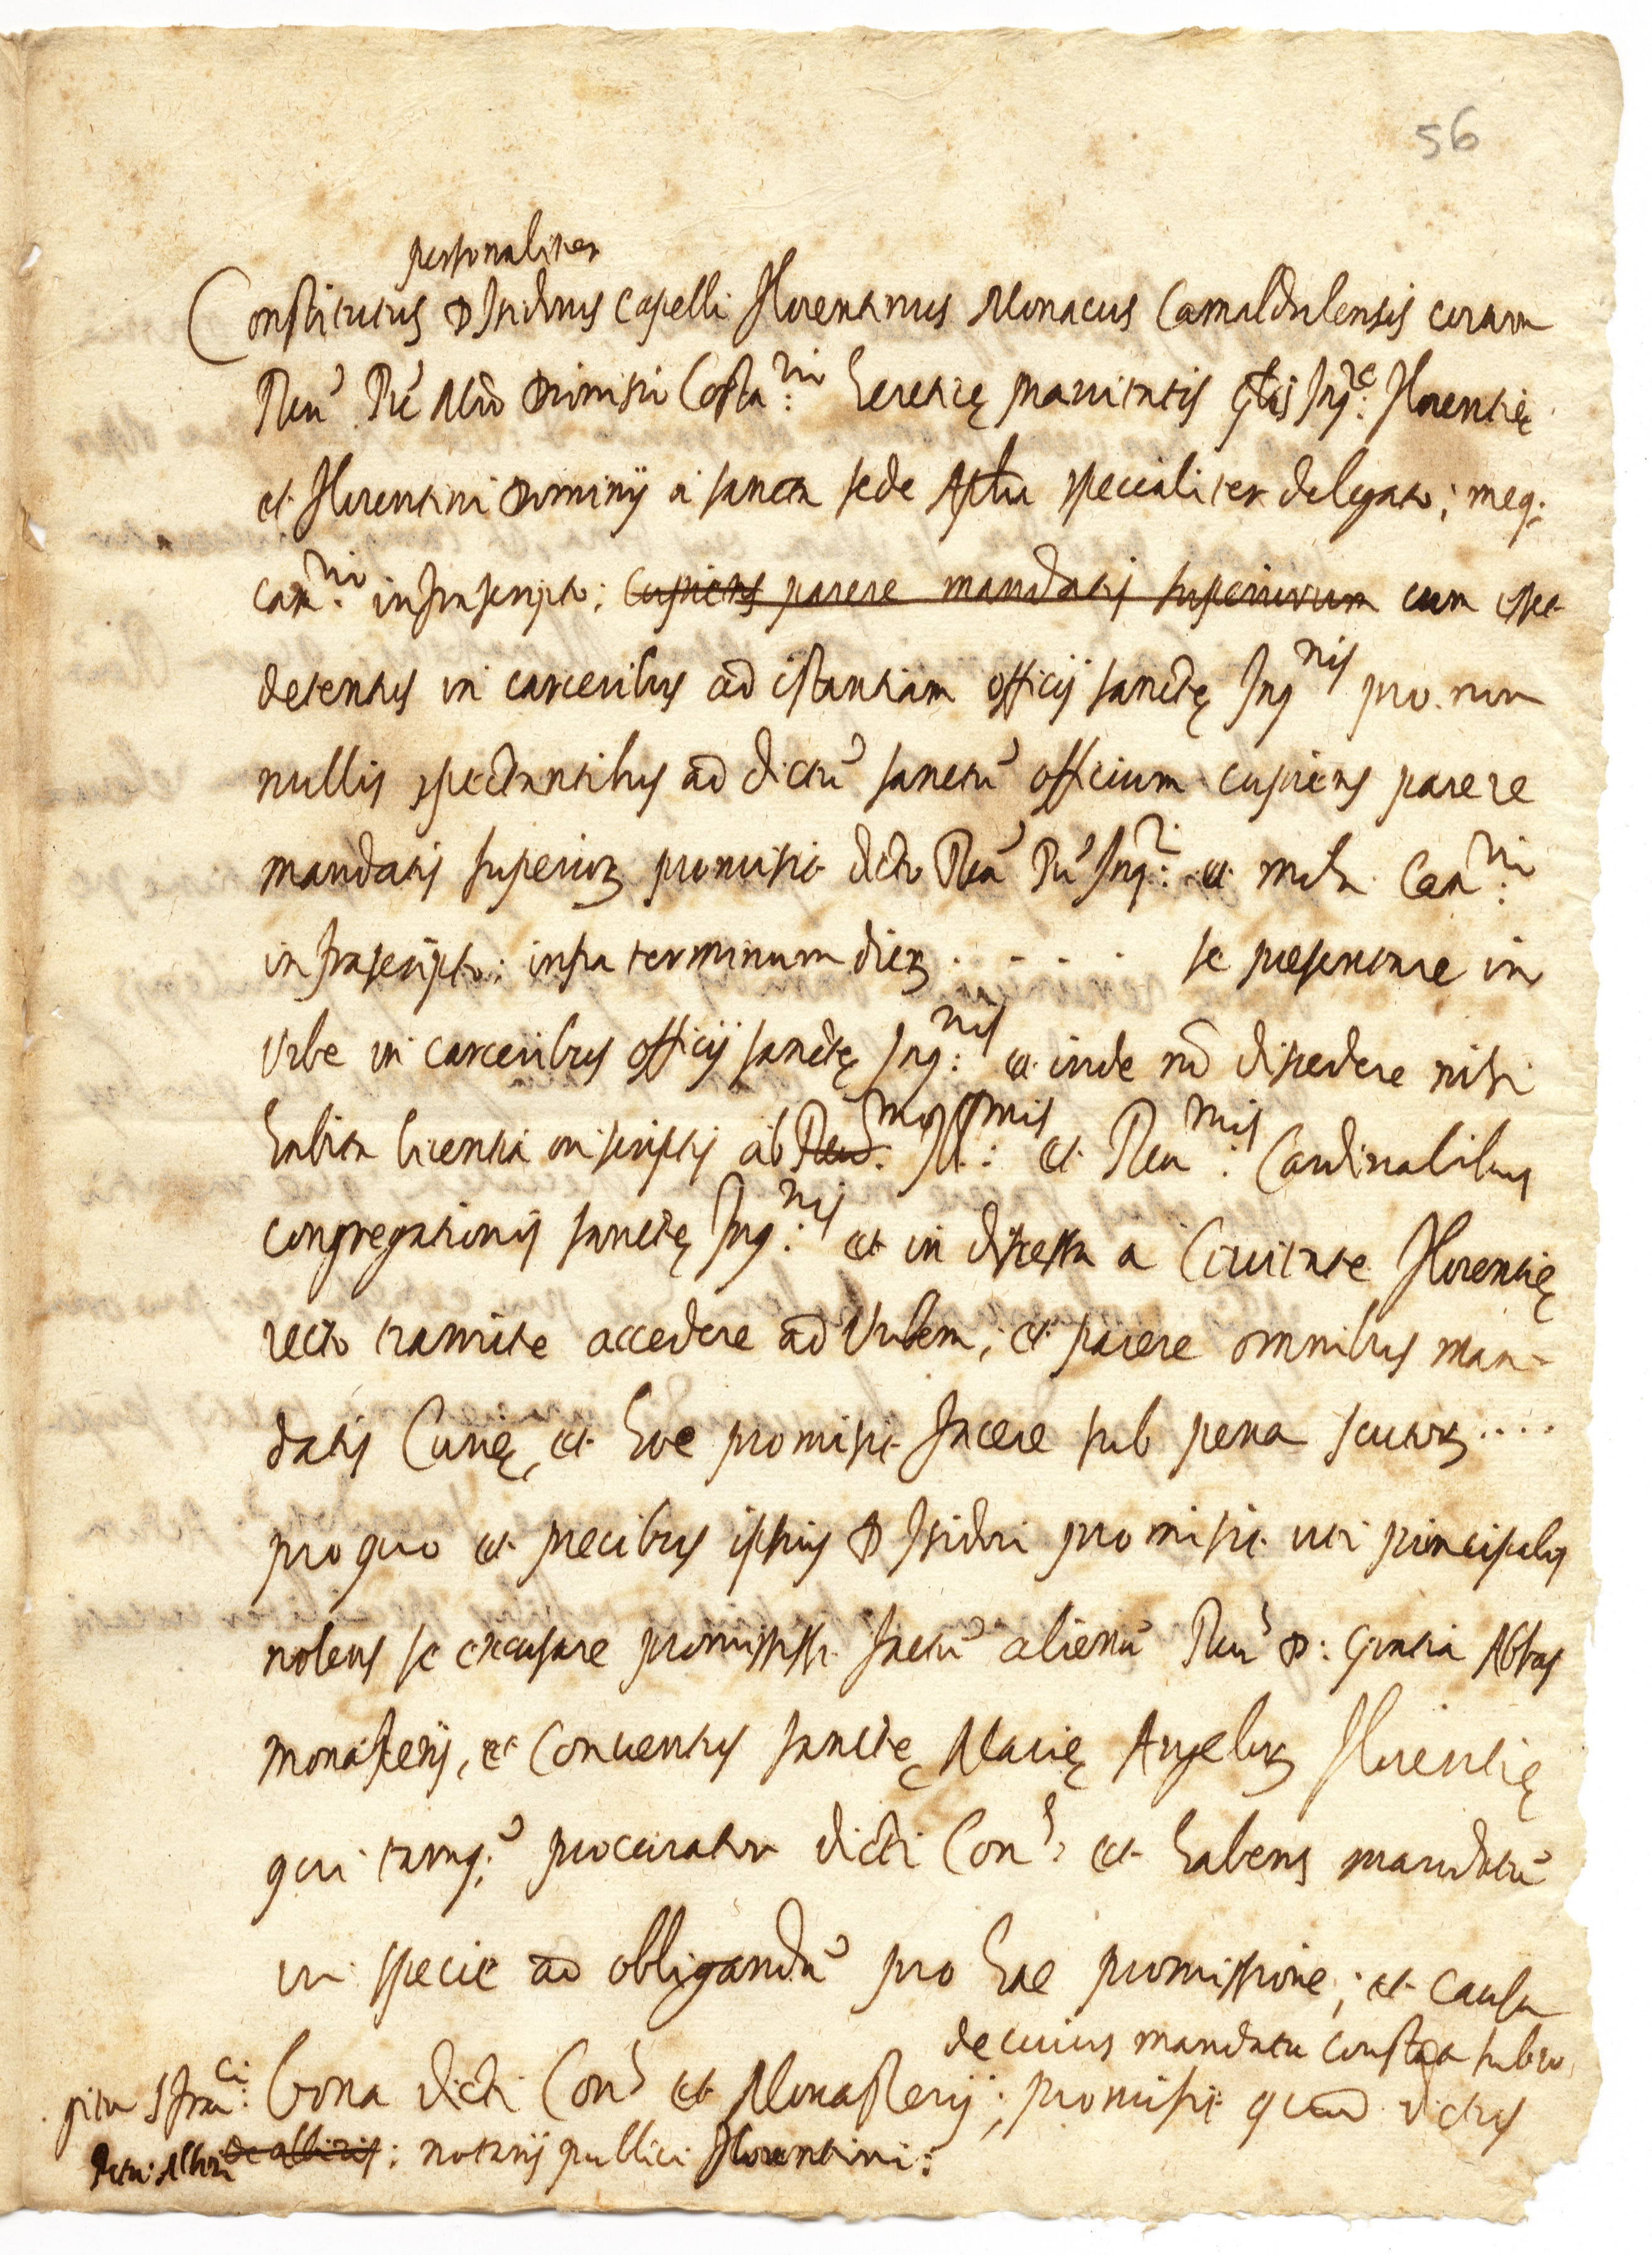 56
personaliter
Constitutus D Isidorus Capelli Florentinus Monacus Camaldulensis coram
Reu. Pre Mro Dionisio Costa.rio heretice prauitatis gnlis Inq.re Florentie
et Florentini Dominij a sancta sede Aplica specialiter delegato; meq;
can.rio infrascripto; cupiens parere mandatis superiorum cum esset
detentus in carceribus ad istantiam officij sancte Inqnis pro non
nullis spectantibus ad dictu sanctu officium cupiens parere
mandatis superior promisit dicto Reu Pri Inq.ri et mihi Can.rio
infrascripto: infra terminum dier . . . . . se presentare in
Vrbe in carceribus officij sancte Inq:nis et inde no discedere nisi
habita licentia in scriptis ab Reu.mo Ill.:mis et Reu:mis Cardinalibus
congregationis sancte Inq.nis et in discessu a Ciuitate Florentie
recto tramite accedere ad Vrbem; et parere omnibus man-
datis Curie, et hoc promisit facere sub pena scutor ....
pro quo et precibus ipsius D Isidori promisit uti principalis
nolens se excusare promississe factu alienu Reu D: Gratia Abbas
monasterij, et Conuentus sancte Marie Angelor Florentie
qui tamq; procurator dicti Con. et habens mandatu
in specie ad obligandu pro hac promissione; et causa
de cuius mandato constat sub ro
gitu S Fran:ci bona dicti Con et Monasterij; promisit quod dictus
de albizis: notarij publici Florentini: